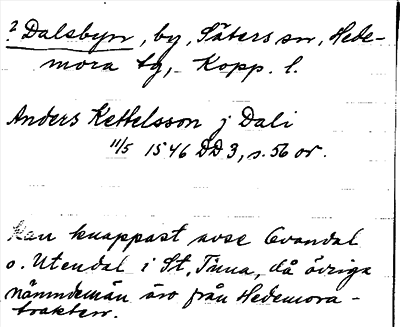 ? Dalsbyn, by, Säters sn, Hede-
mora tg, Kopp. l.
Anders Kettelsson j Dali
11/5 1546 DD 3, s. 56 or.
Kan knappast avse Ovandal
o. Utendal i St. Tuna, då övriga
nämndemän äro från Hedemora-
trakten.